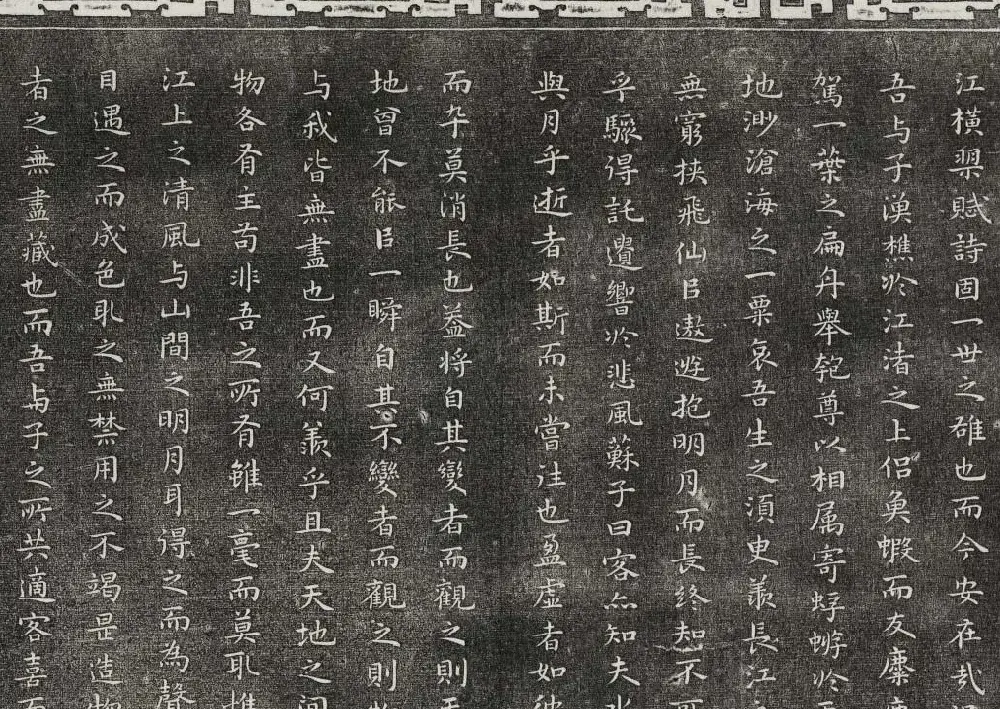 江橫槊賦詩固一世之雄也而今安在㢤
吾与子漁樵於江渚之上侣魚蝦而友麋
駕一葉之扁舟舉匏尊以相属寄蜉蝣於
地渺滄海之一粟哀吾生之湏臾羨長江
無窮挟飛仙㠯遨遊抱明月而長終知不可
乎驟得託遺響於悲風蘇子曰客亦知夫水
與月乎逝者如斯而未嘗往也盈虚者如彼
而卒莫消長也葢将自其變者而觀之則天
地曾不能㠯一瞬自其不變者而觀之則
与我皆無盡也而又何羨乎且夫天地之间
物各有主苟非吾之所有雖一毫而莫取惟
江上之清風与山間之明月耳得之而為聲
目遇之而成色取之無禁用之不竭是造物
者之無盡藏也而吾与子之所共適客喜而